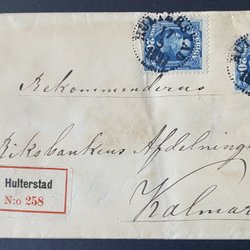 20 SVERIGE 20
Rekommenderas
Riksbankens Afdelning
Kalmar
Hulterstad
N:o 258